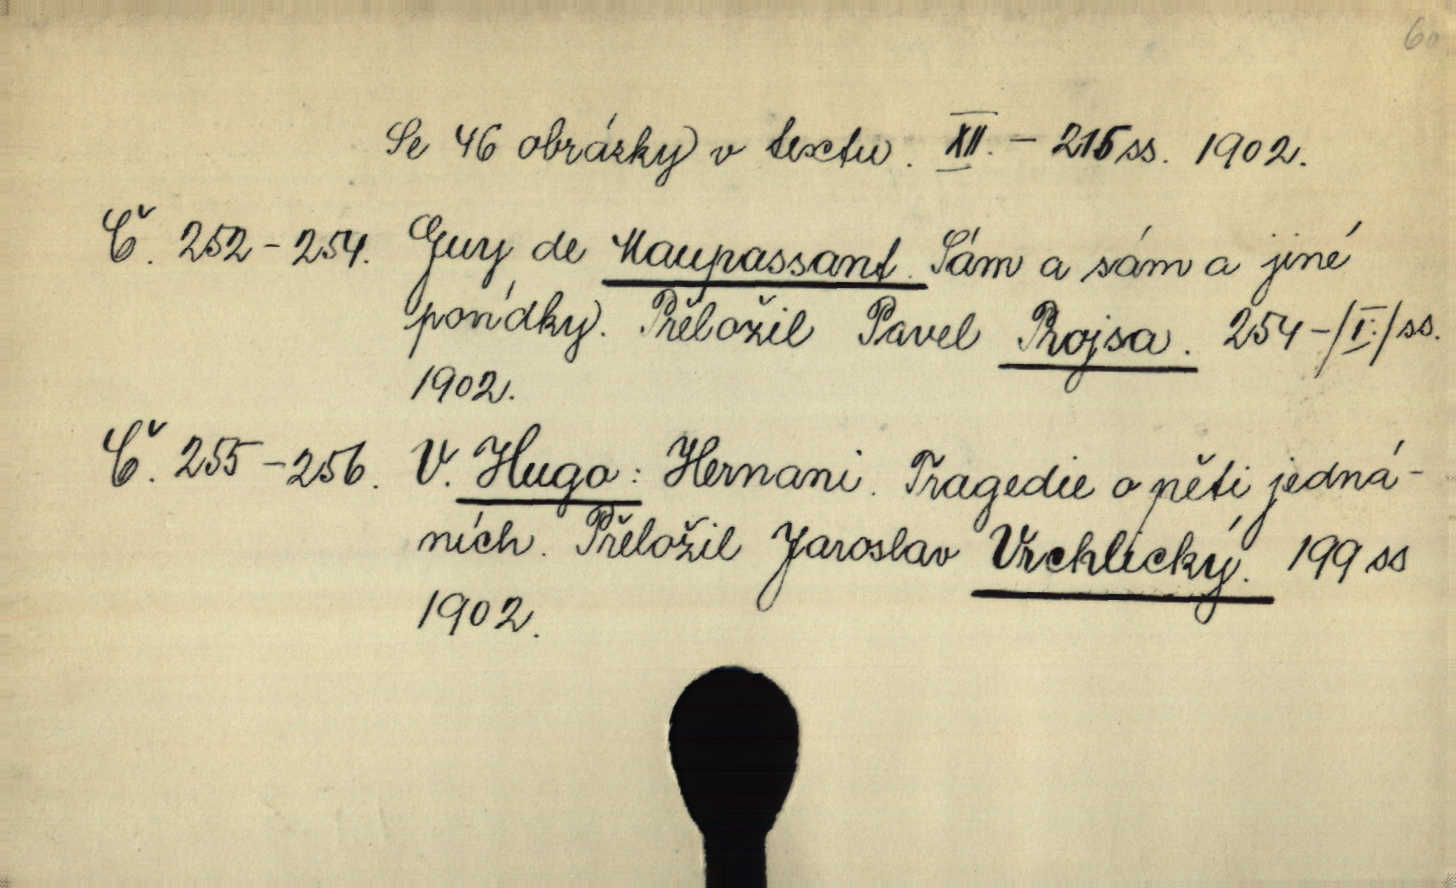 60
Se 46 obrázky v textu. XII. – 215 ss. 1902.
Č. 252-254. Guy de Maupassant. Sám a sám a jiné
povídky. Přeložil Pavel Projsa. 254-/I./ss.
1902.
Č. 255-256. V. Hugo: Hernani. Tragedie o pěti jedná-
ních. Přeložil Jaroslav Vrchlický. 199 ss
1902.